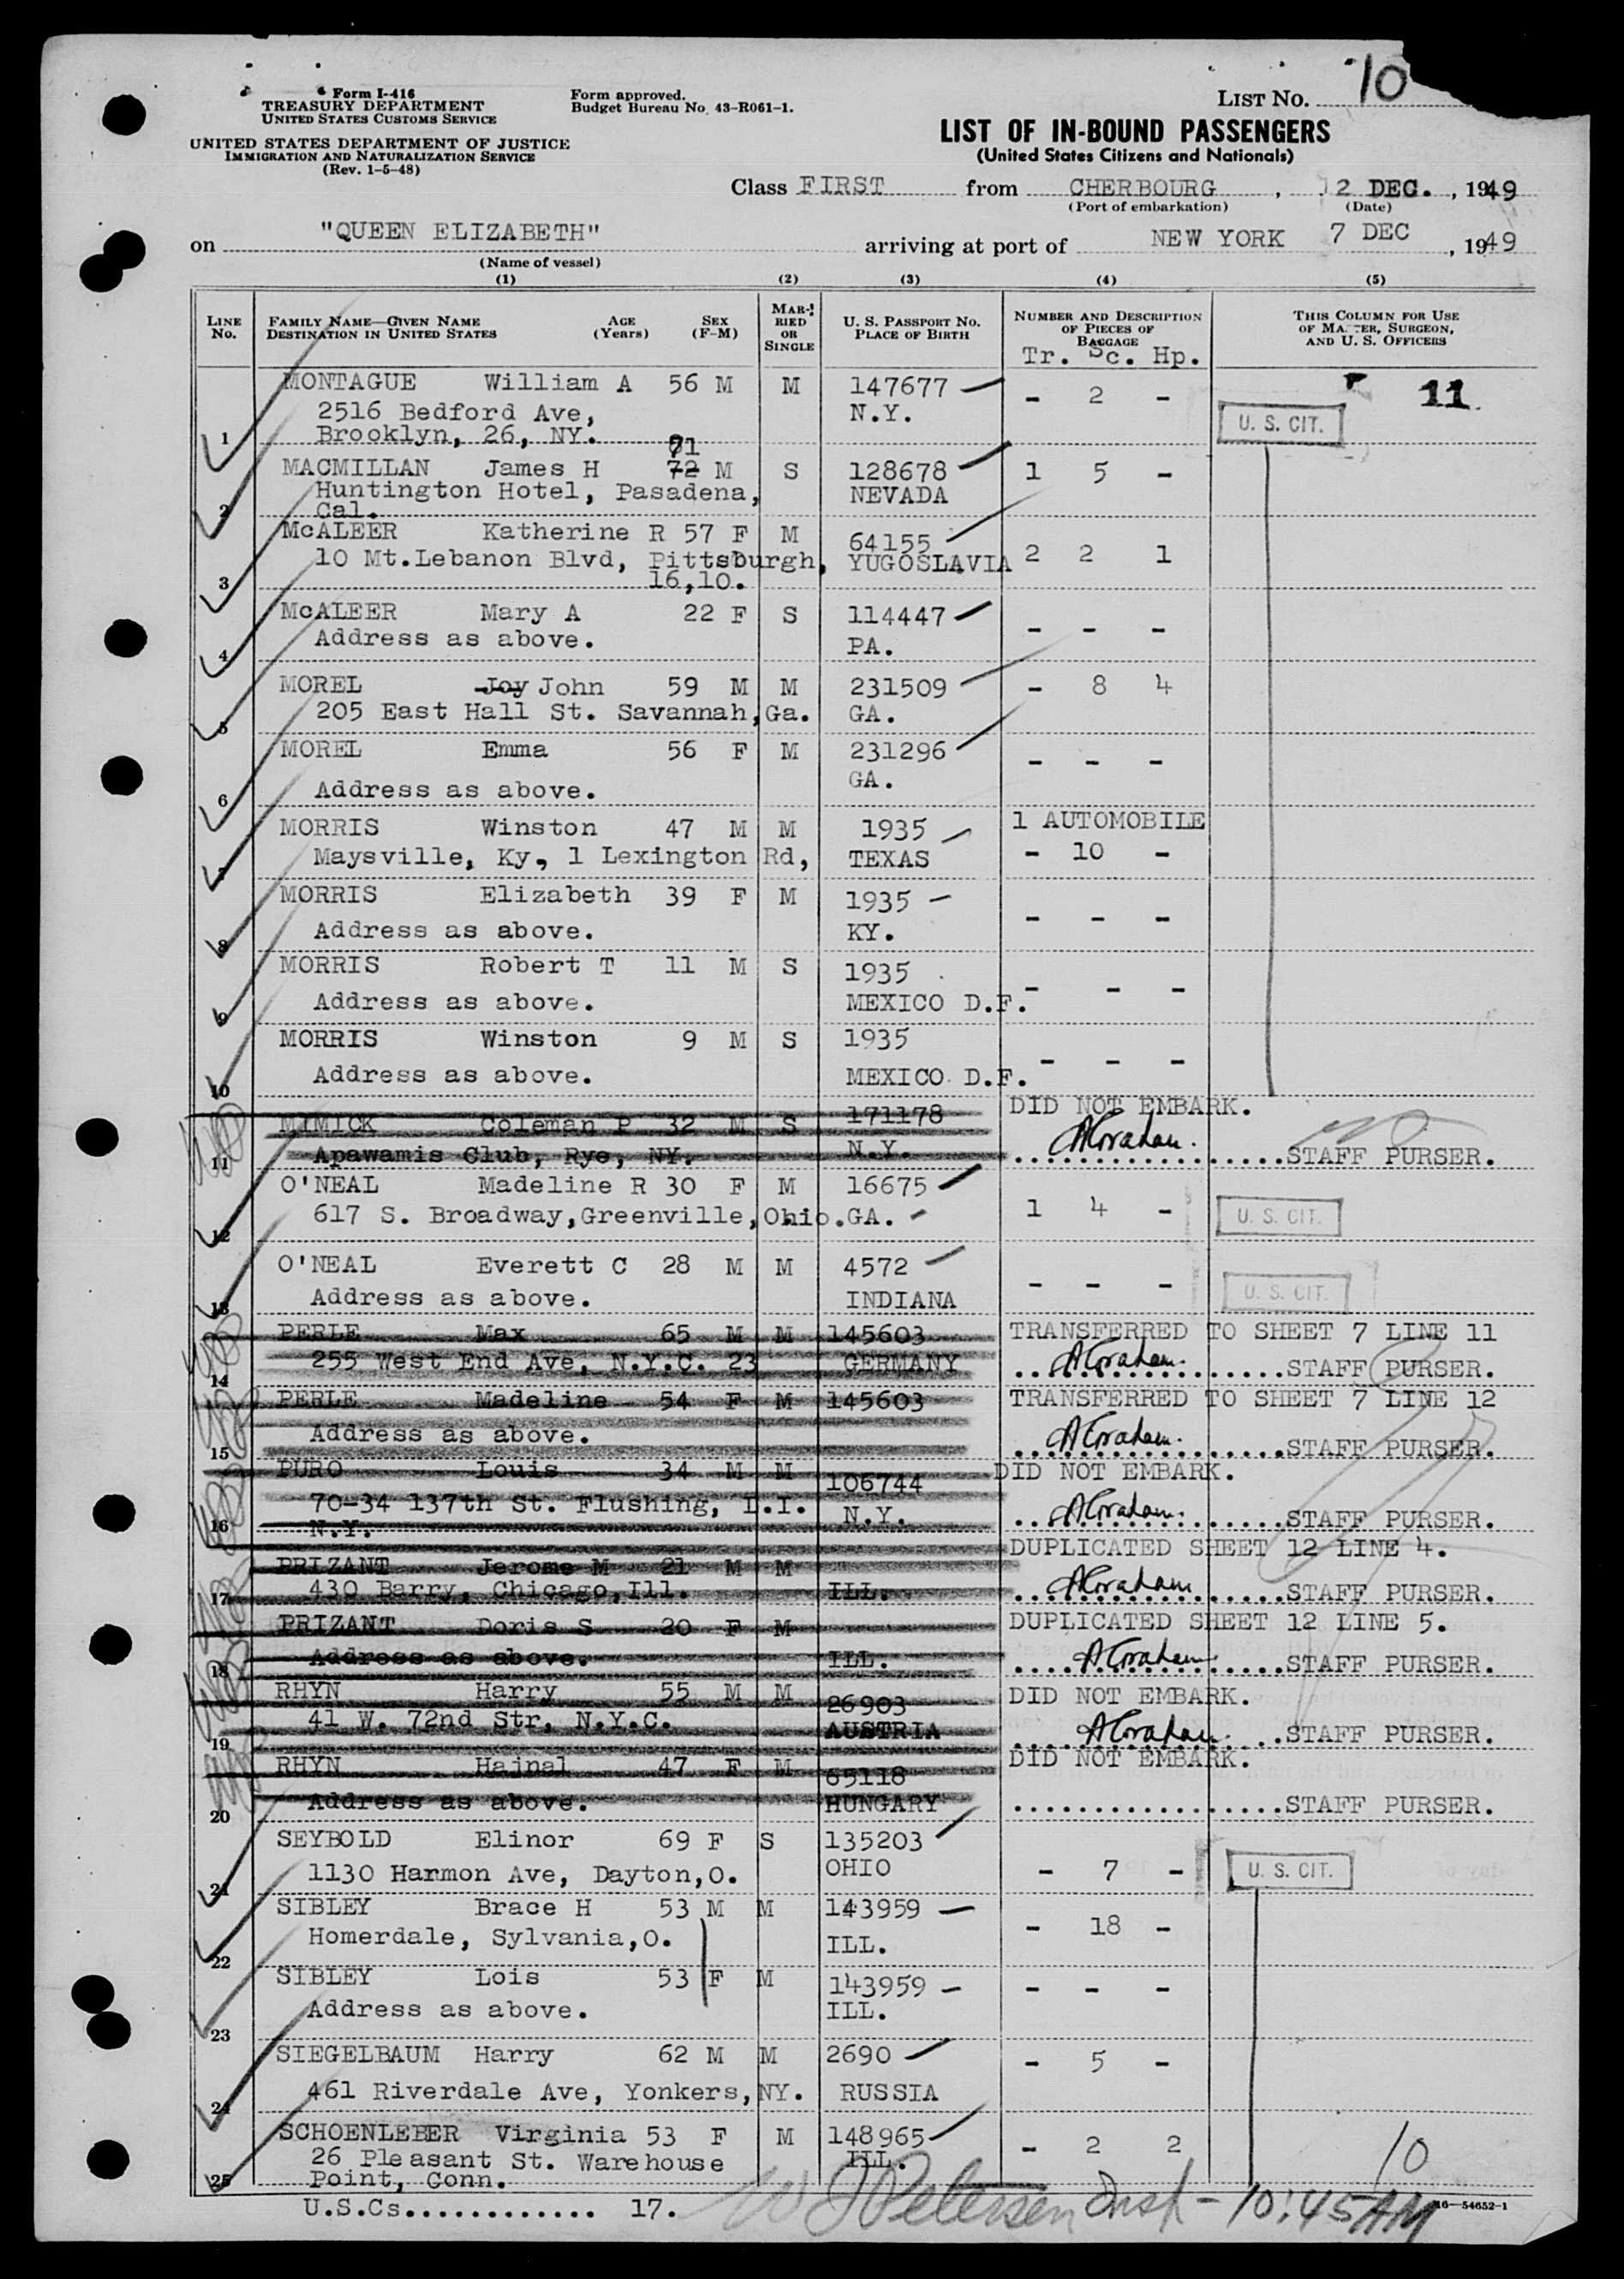 Form I-416
TREASURY DEPARTMENT
UNITED STATES CUSTOMS SERVICE
UNITED STATES DEPARTMENT OF JUSTICE
IMMIGRATION AND NATURALIZATION SERVICE
(Rev. 1-5-48)
Form approved.
Budget Bureau No. 43-R061-1.
LIST No. 10
LIST OF IN-BOUND PASSENGERS
(United States Citizens and Nationals)
Class FIRST from CHERBOURG, 2 DEC., 1949
(Port of embarkation) (Date)
on "QUEEN ELIZABETH" arriving at port of NEW YORK 7 DEC, 1949
(Name of vessel)
(1) (2) (3) (4) (5)
LINE No. FAMILY NAME—GIVEN NAME DESTINATION IN UNITED STATES AGE (Years) SEX (F-M) MARRIED OR SINGLE U. S. PASSPORT No. PLACE OF BIRTH NUMBER AND DESCRIPTION OF PIECES OF BAGGAGE THIS COLUMN FOR USE OF MASTER, SURGEON, AND U. S. OFFICERS
Tr. Sc. Hp.
MONTAGUE William A 56 M M 147677 - 2 - 11
2516 Bedford Ave, N.Y. U. S. CIT.
1 Brooklyn, 26, NY.
71
MACMILLAN James H 72 M S 128678 1 5 -
Huntington Hotel, Pasadena, NEVADA
2 Cal.
McALEER Katherine R 57 F M 64155
10 Mt.Lebanon Blvd, Pittsburgh, YUGOSLAVIA 2 2 1
3 16,10.
McALEER Mary A 22 F S 114447 - - -
4 Address as above. PA.
MOREL Joy John 59 M M 231509 - 8 4
5 205 East Hall St. Savannah, Ga. GA.
MOREL Emma 56 F M 231296 - - -
6 Address as above. GA.
MORRIS Winston 47 M M 1935 1 AUTOMOBILE
7 Maysville, Ky, 1 Lexington Rd, TEXAS - 10 -
MORRIS Elizabeth 39 F M 1935 - - -
8 Address as above. KY.
MORRIS Robert T 11 M S 1935 - - -
9 Address as above. MEXICO D.F.
MORRIS Winston 9 M S 1935 - - -
10 Address as above. MEXICO D.F.
MIMICK Coleman P 32 M S 171178 DID NOT EMBARK.
11 Apawamis Club, Rye, NY. N.Y. AGraham. STAFF PURSER.
O'NEAL Madeline R 30 F M 16675 1 4 -
12 617 S. Broadway, Greenville, Ohio. GA. U. S. CIT.
O'NEAL Everett C 28 M M 4572 - - -
13 Address as above. INDIANA U. S. CIT.
PERLE Max 65 M M 145603 TRANSFERRED TO SHEET 7 LINE 11
14 255 West End Ave, N.Y.C. 23 GERMANY AGraham. STAFF PURSER.
PERLE Madeline 54 F M 145603 TRANSFERRED TO SHEET 7 LINE 12
15 Address as above. AGraham. STAFF PURSER.
PURO Louis 34 M M 106744 DID NOT EMBARK.
70-34 137th St. Flushing, L.I. N.Y.
16 N.Y. AGraham. STAFF PURSER.
PRIZANT Jerome M 21 M M DUPLICATED SHEET 12 LINE 4.
17 430 Barry, Chicago, Ill. ILL. AGraham STAFF PURSER.
PRIZANT Doris S 20 F M DUPLICATED SHEET 12 LINE 5.
18 Address as above. ILL. AGraham STAFF PURSER.
RHYN Harry 55 M M 26903 DID NOT EMBARK.
19 41 W. 72nd Str, N.Y.C. AUSTRIA AGraham. STAFF PURSER.
RHYN Hajnal 47 F M 65118 DID NOT EMBARK.
20 Address as above. HUNGARY STAFF PURSER.
SEYBOLD Elinor 69 F S 135203
21 1130 Harmon Ave, Dayton, O. OHIO - 7 - U. S. CIT.
SIBLEY Brace H 53 M M 143959 - 18 -
22 Homerdale, Sylvania, O. ILL.
SIBLEY Lois 53 F M 143959 - - -
23 Address as above. ILL.
SIEGELBAUM Harry 62 M M 2690 - 5 -
24 461 Riverdale Ave, Yonkers, NY. RUSSIA
SCHOENLEBER Virginia 53 F M 148965 - 2 2 10
26 Pleasant St. Warehouse ILL.
25 Point, Conn.
U.S.Cs............. 17. W J Petersen Insp - 10:45 AM 16—54652-1